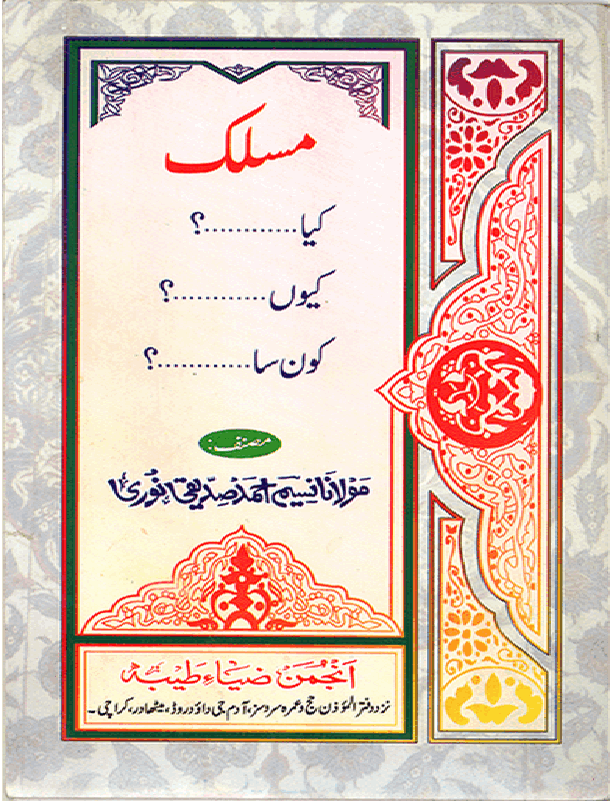 مسلک
کیا............؟
کیوں............؟
کون سا............؟
مصنف:
مولانا نسیم احمد صدیقی نوری
انجمن ضیاءِ طیبہ
نزد دفتر المؤذن حج و عمرہ سروسز، آدم جی داؤد روڈ، میٹھادر، کراچی۔